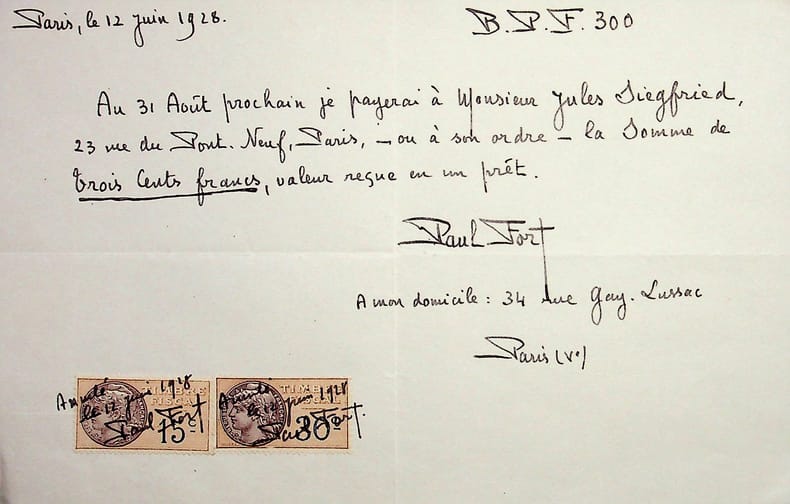 Paris, le 12 juin 1928.
B.P.F. 300
Au 31 Août prochain je payerai à Monsieur Jules Siegfried,
23 rue du Pont-Neuf, Paris, – ou à son ordre – la Somme de
Trois Cents francs, valeur reçue en un prêt.
Paul Fort
A mon domicile : 34 rue Gay-Lussac
Paris (Ve)
Annulé
le 12 juin 1928
Paul Fort
TIMBRE
FISCAL
15c
Annulé
le 12 juin 1928
Paul Fort.
TIMBRE
FISCAL
30c